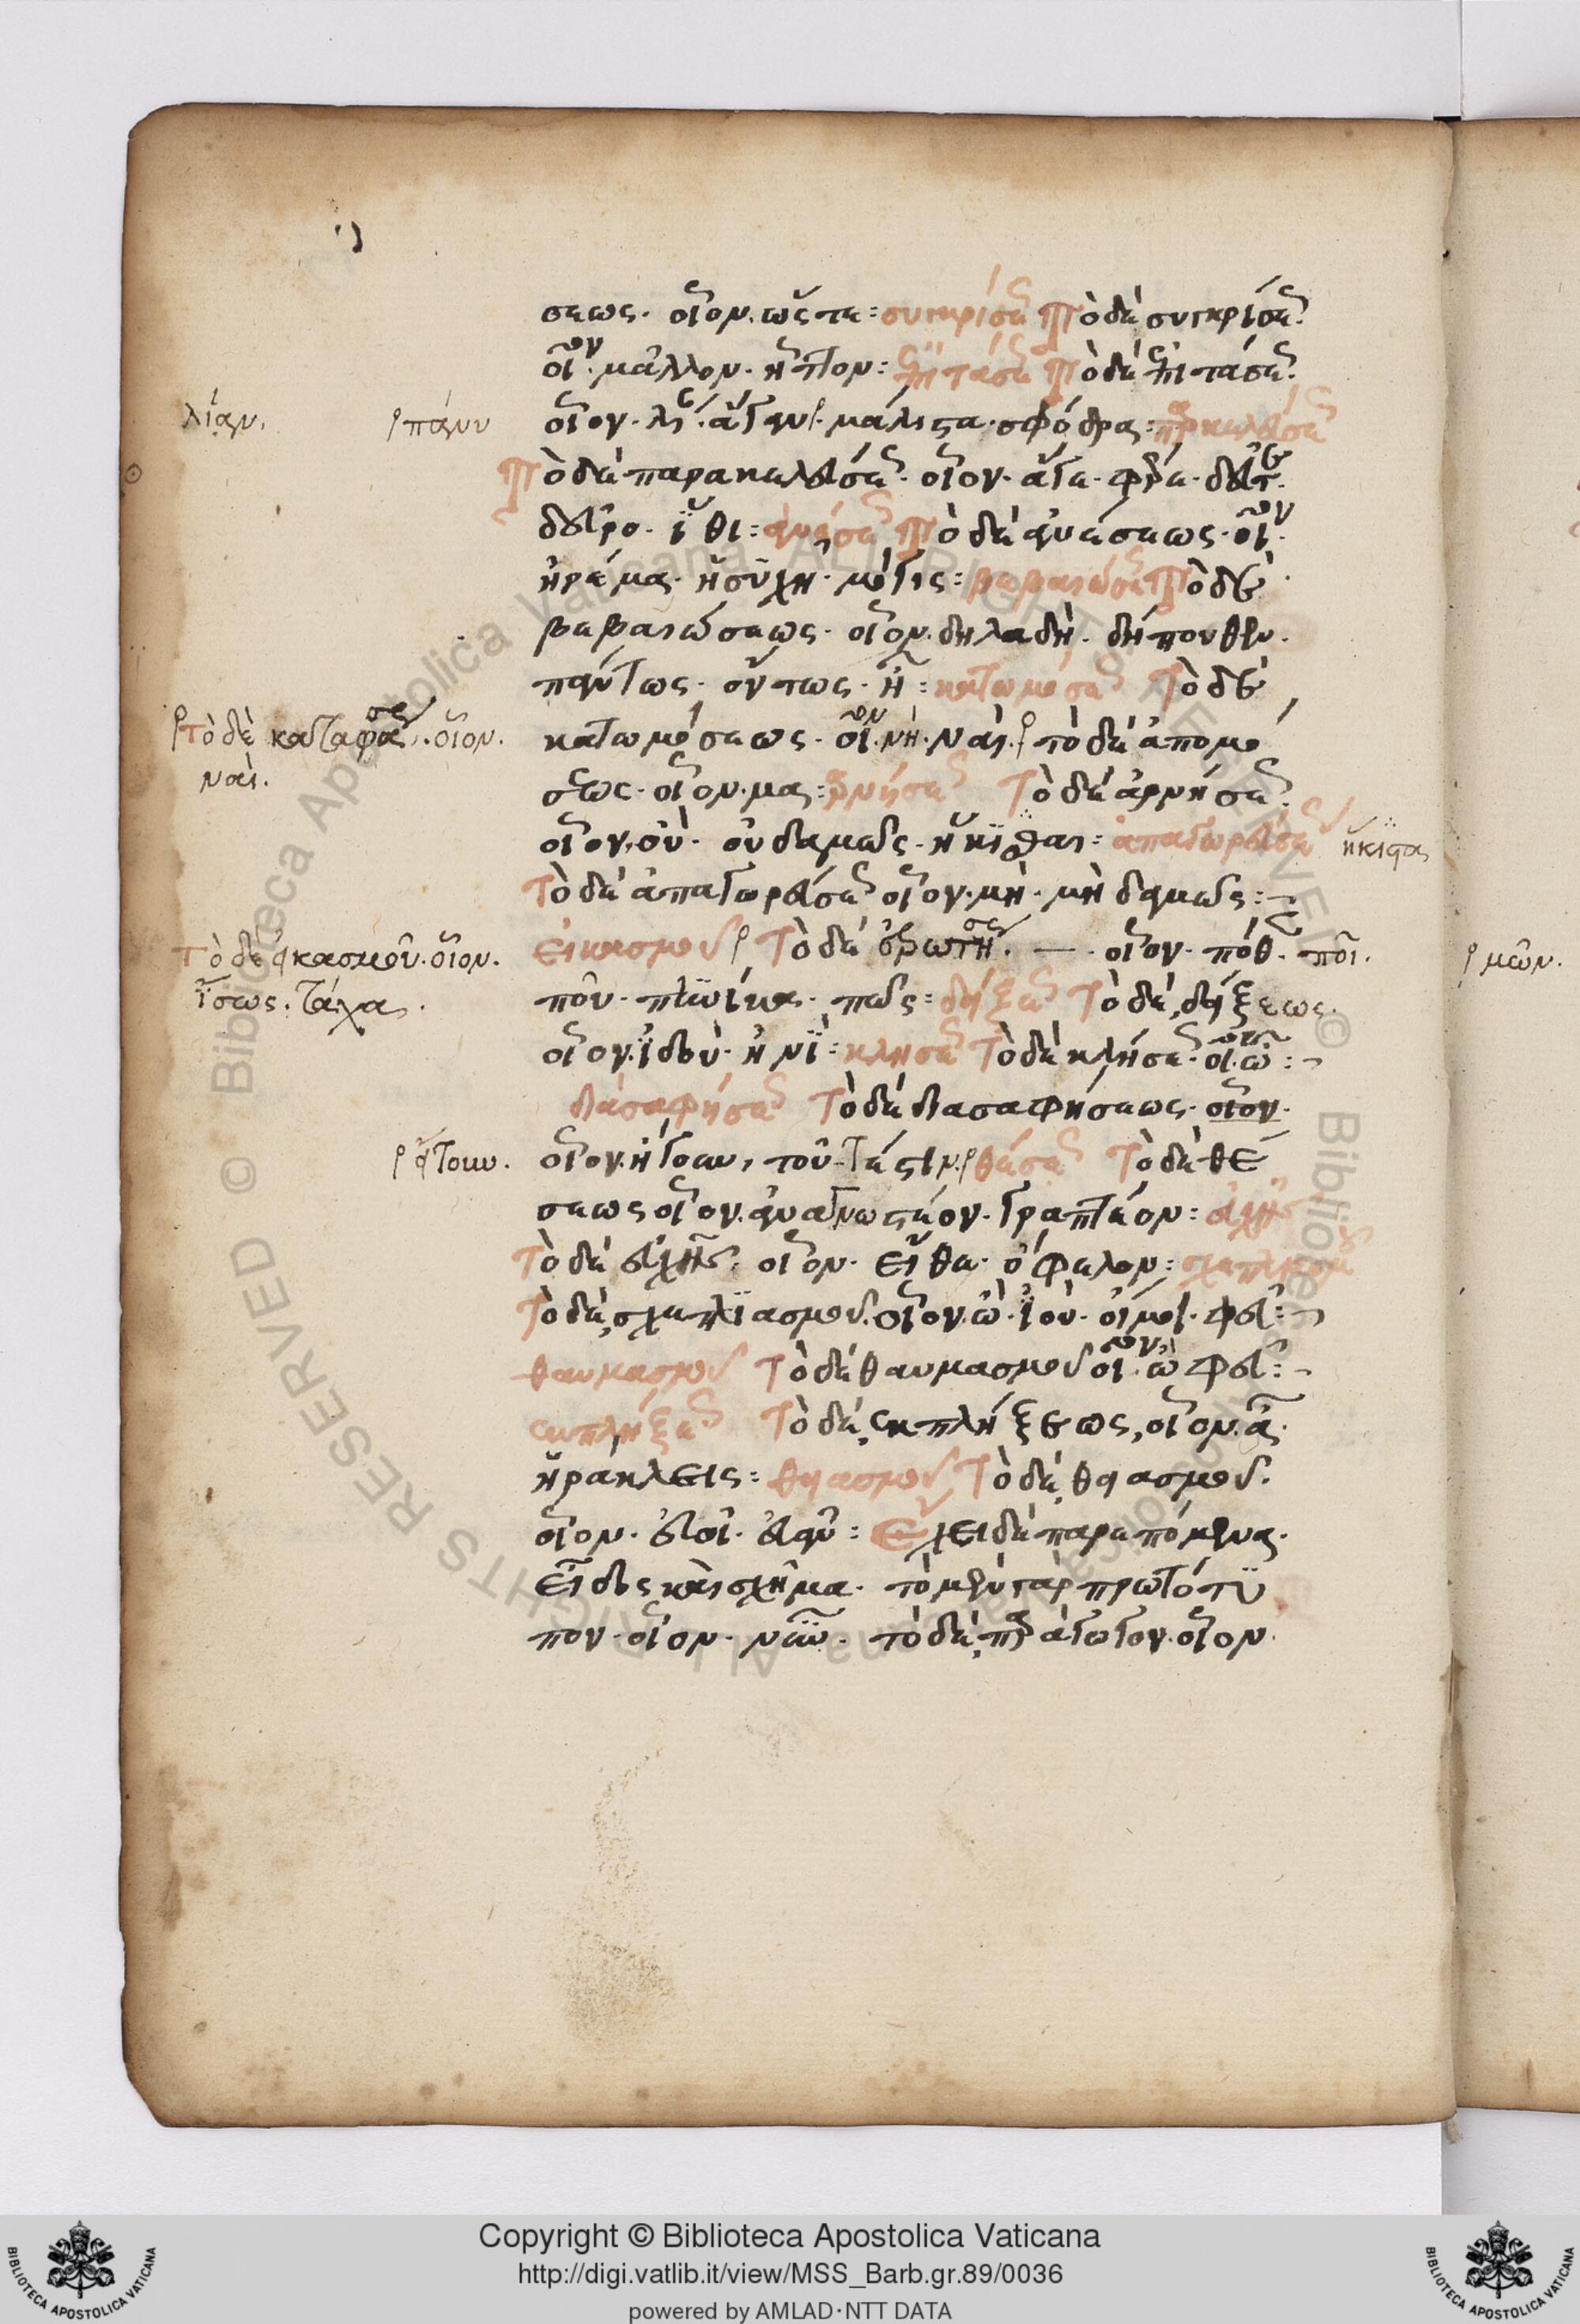 σεως· οἷον· ὥς τε: συγκρίσεως Τὸ δὲ συγκρίσεως·
οἷον· μᾶλλον· ἧττον: ἐπιτάσεως Τὸ δὲ ἐπιτάσεως·
λίαν·
⸗πάνυ
οἷον· λίαν· ἄγαν· μάλιστα· σφόδρα: παρακελεύσεως
Τὸ δὲ παρακελεύσεως· οἷον· ἄγε· φέρε· δεῦτε·
δεῦρο· ἴθι: ἀνέσεως Τὸ δὲ ἀνέσεως· οἷον·
ἠρέμα· ἡσυχῆ· μόγις: βεβαιώσεως Τὸ δὲ
βεβαιώσεως· οἷον· δηλαδή· δήπουθεν·
πάντως· ὄντως· ἦ: κατωμόσεως Τὸ δὲ
τὸ δὲ καταφάσεως· οἷον·
ναί·
κατωμόσεως· οἷον· νή· ναί· τὸ δὲ ἀπομό
σεως· οἷον· μα: ἀρνήσεως Τὸ δὲ ἀρνήσεως·
οἷον· οὐ· οὐδαμῶς· ἥκιστα: ἀπαγορεύσεως
ἥκιστα
Τὸ δὲ ἀπαγορεύσεως οἷον· μή· μηδαμῶς:
Τὸ δὲ εἰκασμοῦ· οἷον·
ἴσως· τάχα·
εἰκασμοῦ Τὸ δὲ ἐρωτήσεως· οἷον· πόθεν· ποῖ·
μῶν·
ποῦ· πηνίκα· πῶς: δείξεως Τὸ δὲ δείξεως·
οἷον· ἰδού· ἠνί: κλήσεως Τὸ δὲ κλήσεως· οἷον· ὦ:
διασαφήσεως Τὸ δὲ διασαφήσεως· οἷον·
ἤγουν·
οἷον· ἤγουν, τουτέστιν· θέσεως Τὸ δὲ θέ
σεως οἷον· ἀναγνωστέον· γραπτέον: εὐχῆς
Τὸ δὲ εὐχῆς· οἷον· εἴθε· ὄφελον: σχετλιασμοῦ
Τὸ δὲ σχετλιασμοῦ· οἷον· ὤ· ἰού· οἴμοι· φεῦ:
θαυμασμοῦ Τὸ δὲ θαυμασμοῦ οἷον· ὤ φεῦ:
ἐκπλήξεως Τὸ δὲ ἐκπλήξεως, οἷον· ἆ·
ἡράκλεις: θειασμοῦ Τὸ δὲ θειασμοῦ·
οἷον· εὐοῖ· εὐάν: ἔχει δὲ παρεπόμενα·
εἶδος καὶ σχῆμα· τὸ μὲν γὰρ πρωτότυ
πον· οἷον· νῦν· τὸ δὲ παράγωγον· οἷον·
Copyright © Biblioteca Apostolica Vaticana
http://digi.vatlib.it/view/MSS_Barb.gr.89/0036
powered by AMLAD·NTT DATA